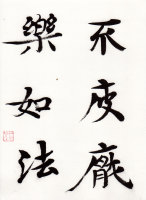 不疲厭
樂如法